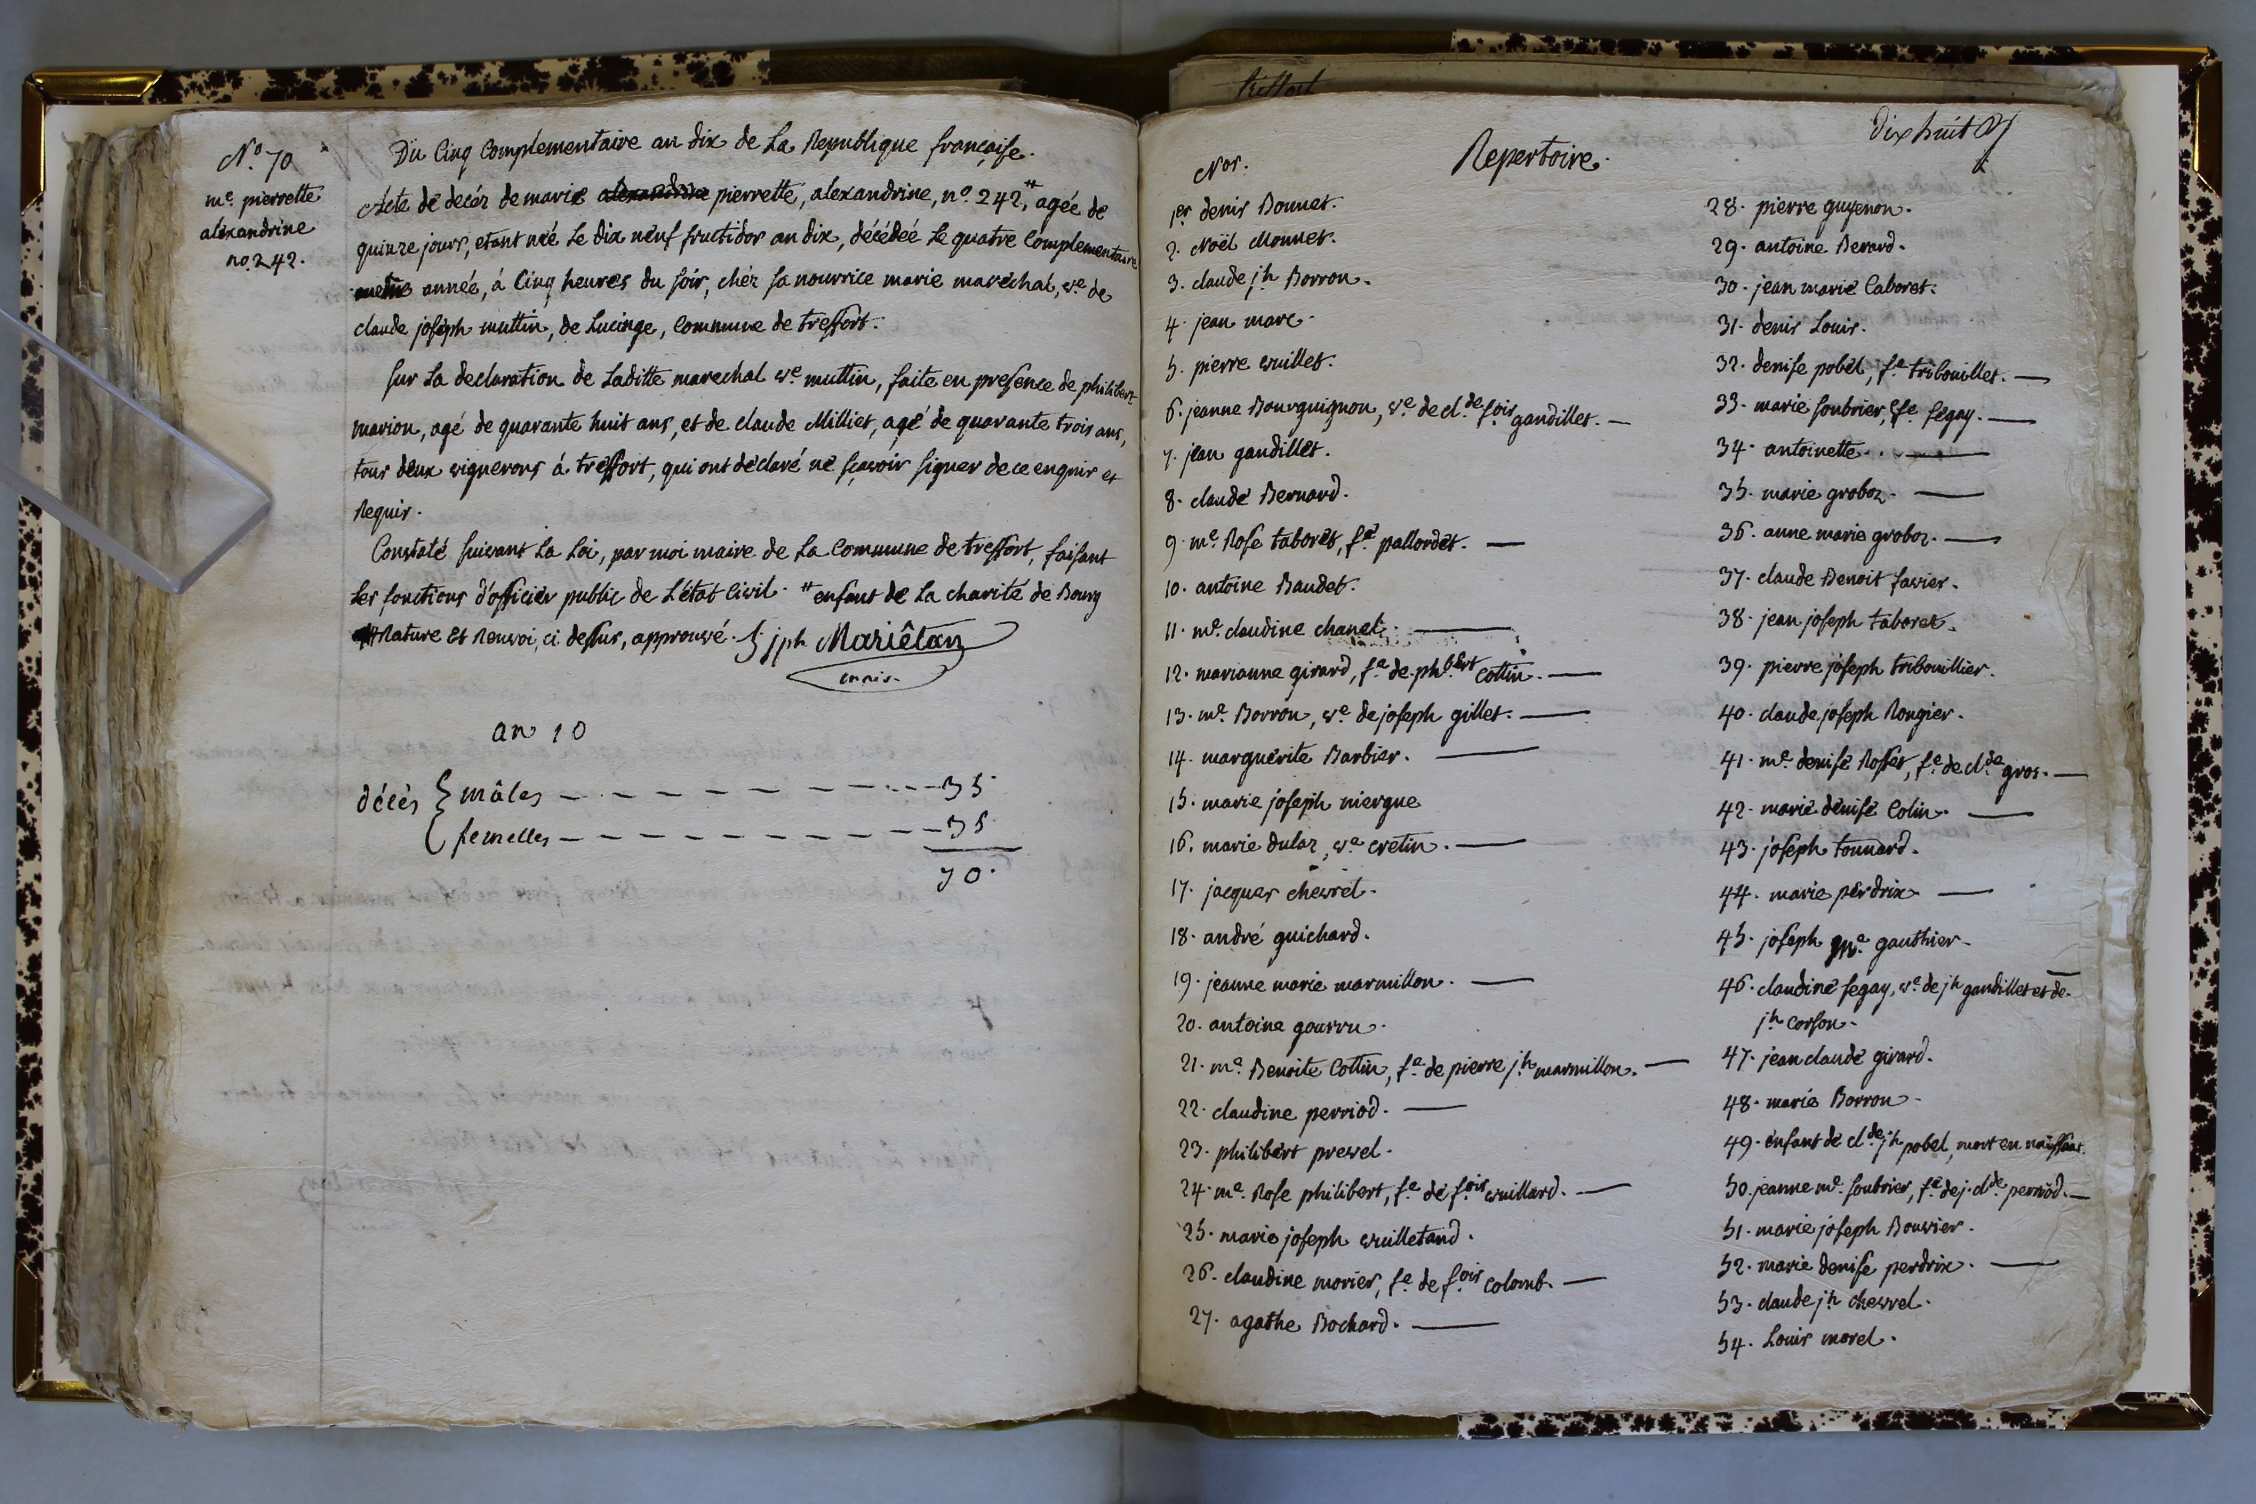 N.o 70
m.e pierrette
alexandrine
n.o 242.
Du Cinq Complémentaire an dix de La Republique françaife.
Acte de decéz de marie alexandrine pierrette, alexandrine, n.o 242,# agée de
quinze jours, etant née Le dix neuf fructidor an dix, décédée Le quatre Complementaire
même année, á Cinq heures du foir, chéz fa nourrice marie maréchal, v.e de
claude jofeph muttin, de Lucinge, Commune de treffort.
fur La declaration de Laditte marechal v.e muttin, faite en prefence de philibert
marion, agé de quarante huit ans, et de claude Milliet, agé de quarante trois ans,
tous deux vignerons á treffort, qui ont déclaré ne fçavoir figner de ce enquir et
Requis.
Constaté fuivant La Loi, par moi maire de La Commune de treffort, faifant
Les fonctions d'officier public de L'état Civil. # enfant de La charité de Bourg
Rature Et Renvoi, ci deffus, approuvé. jph Mariêtan
an 10
décès { mâles ---------- 35
femelles ---------- 35
70.
dix huit
Repertoire.
Nos.
1er denis Bonnet.
2. Noël Monnet.
3. claude j.h Borron.
4. jean marc.
5. pierre vuillet.
6. jeanne Bourguignon, v.e de cl.de f.ois gandillet. —
7. jean gandillet.
8. claude Bernard.
9. m.e Rofe taboret, f.e pallordet. —
10. antoine Baudet.
11. m.e claudine chanel. —
12. marianne girard, f.e de ph.bert Cottin. —
13. m.e Borron, v.e de jofeph gillet. —
14. marguérite Barbier. —
15. marie jofeph niergue
16. marie dulaz, v.e cretin. —
17. jacques chevrel.
18. andré guichard.
19. jeanne marie marmillon. —
20. antoine gourru.
21. m.e Benoite Cottin, f.e de pierre j.h marmillon. —
22. claudine perriod. —
23. philibert prevel.
24. m.e Rofe philibert, f.e de f.ois vuillard. —
25. marie jofeph vuilletand.
26. claudine morier, f.e de f.ois Colomb. —
27. agathe Bochard. —
28. pierre guyenon.
29. antoine Berard.
30. jean marie Caboret.
31. denis Louis.
32. denife pobel, f.e tribouillet. —
33. marie foubrier, f.e fegay. —
34. antoinette. . —
35. marie groboz. —
36. anne marie groboz. —
37. claude Benoit favier.
38. jean jofeph taboret.
39. pierre jofeph tribouillier.
40. claude jofeph Rongier.
41. m.e denife Roffet, f.e de cl.de gros. —
42. marie dénife Colin. —
43. jofeph tonnard.
44. marie perdrix —
45. jofeph m.e gauthier.
46. claudine fegay, v.e de j.h gandillet et de — 
j.h Corfon.
47. jean claude girard.
48. marie Borron.
49. enfant de cl.de j.h pobel, mort en naiffant.
50. jeanne m.e foubrier, f.e de j. cl.de perriod. —
51. marie jofeph Bouvier.
52. marie denife perdrix. —
53. claude j.h chevrel.
54. Louis morel.